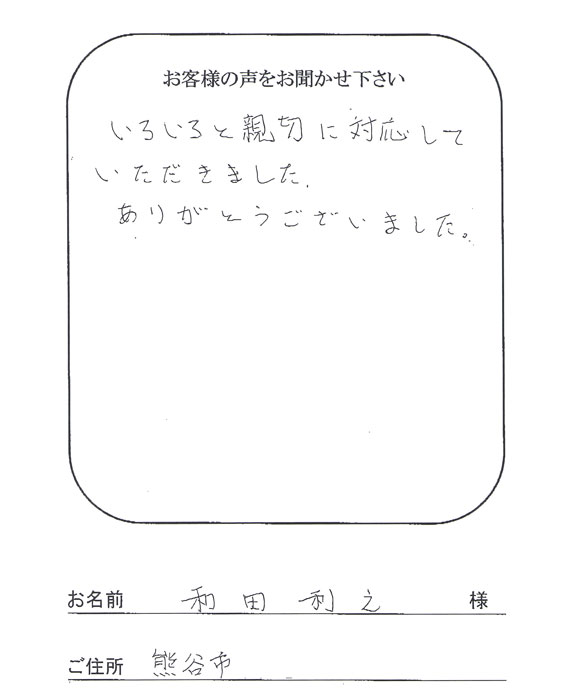 お客様の声をお聞かせ下さい
いろいろと親切に対応して
いただきました.
ありがとうございました。
お名前 和田利之 様
ご住所 熊谷市